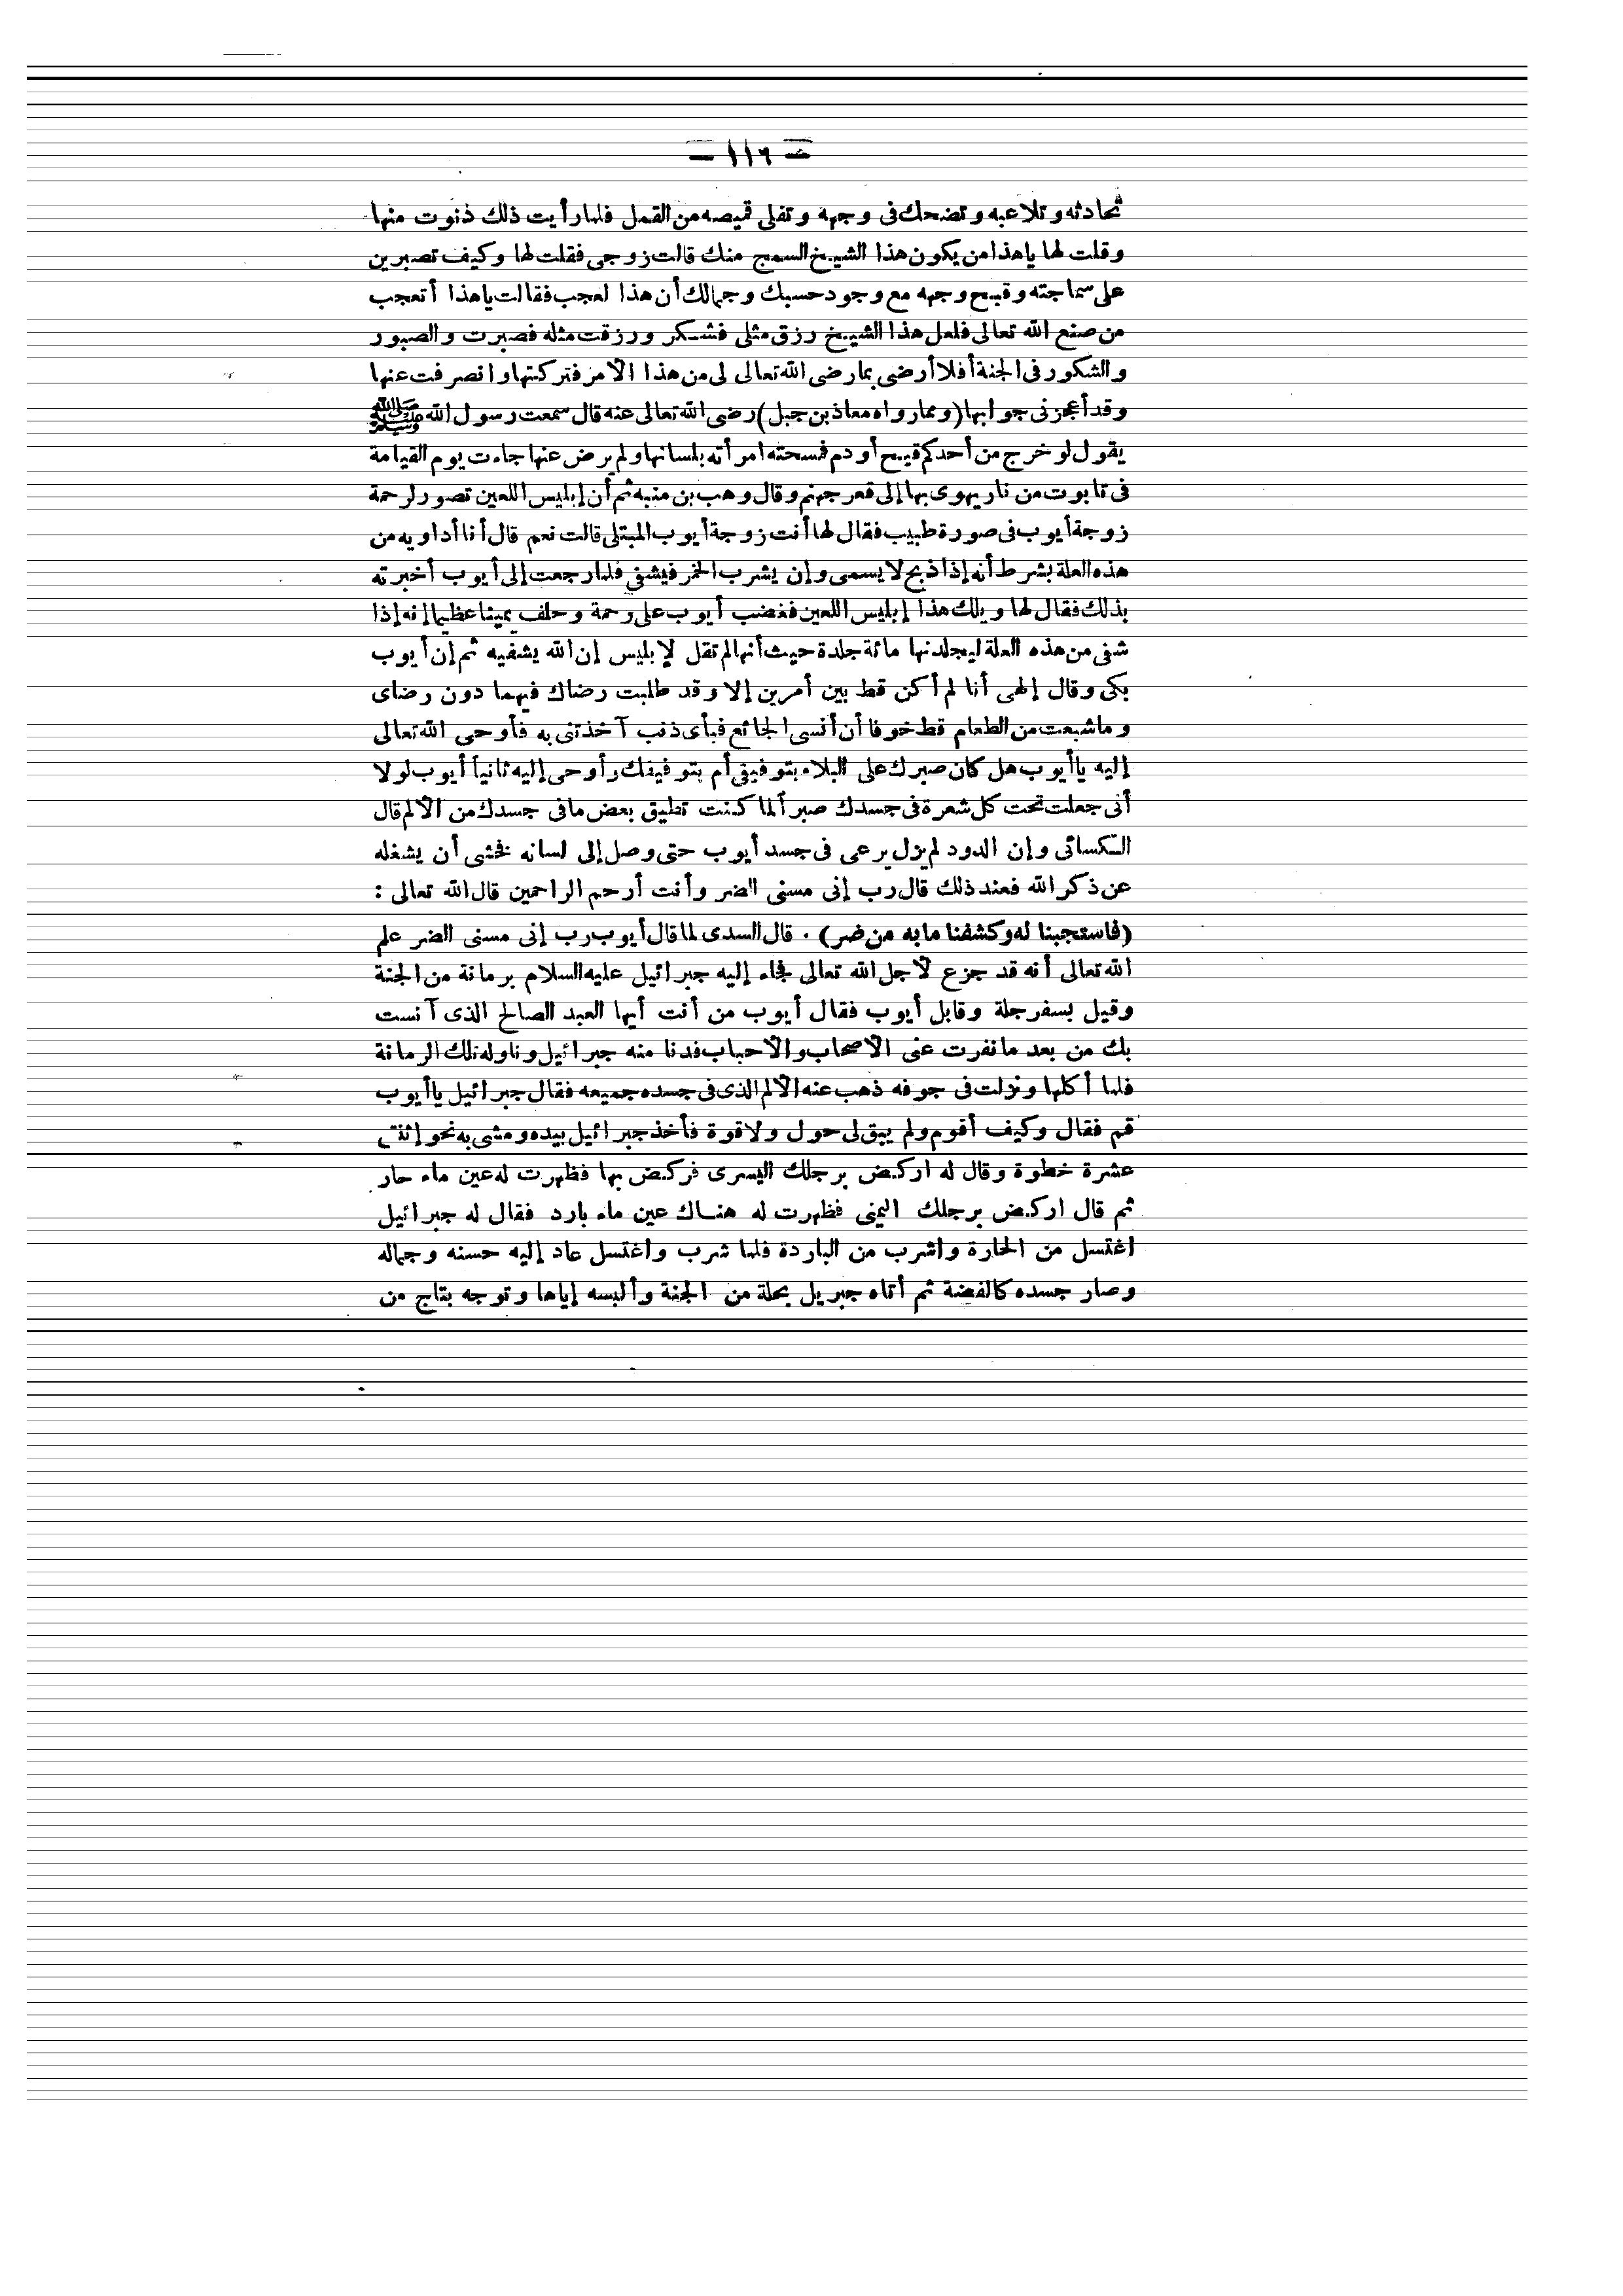 — ١١٦ —
تحادثه وتلاعبه وتضحك فى وجهه وتفلى قميصه من القمل فلما رأيت ذلك دنوت منها
وقلت لها ياهذا من يكون هذا الشيخ السمج منك قالت زوجى فقلت لها وكيف تصبرين
على سماجته وقبيح وجهه مع وجود حسبك وجمالك أن هذا لعجب فقالت ياهذا أتعجب
من صنع الله تعالى فلعل هذا الشيخ رزق مثلى فشكر ورزقت مثله فصبرت والصبور
والشكور فى الجنة أفلا أرضى بما رضى الله تعالى لى من هذا الأمر فتركتها وانصرفت عنها
وقد أعجزنى جوابها (ومما رواه معاذ بن جبل) رضى الله تعالى عنه قال سمعت رسول الله ﷺ
يقول لو خرج من أحدكم قيح أو دم فمسحته امرأته بلسانها ولم يرض عنها جاءت يوم القيامة
فى تابوت من نار يهوى بها إلى قعر جهنم وقال وهب بن منبه ثم أن إبليس اللعين تصور لرحمة
زوجة أيوب فى صورة طبيب فقال لها أنت زوجة أيوب المبتلى قالت نعم قال أنا أداويه من
هذه العلة بشرط أنه إذا ذبح لا يسمى وإن يشرب الخمر فيشفى فلما رجعت إلى أيوب أخبرته
بذلك فقال لها ويلك هذا إبليس اللعين فغضب أيوب على رحمة وحلف يمينا عظيما إنه إذا
شفى من هذه العلة ليجلدنها مائة جلدة حيث أنها لم تقل لإبليس إن الله يشفيه ثم إن أيوب
بكى وقال إلهى أنا لم أكن قط بين أمرين إلا وقد طلبت رضاك فيهما دون رضاى
وما شبعت من الطعام قط خوفا أن أنسى الجائع فبأى ذنب آخذتنى به فأوحى الله تعالى
إليه يا أيوب هل كان صبرك على البلاء بتوفيقى أم بتوفيقك وأوحى إليه ثانيا أيوب لولا
أنى جعلت تحت كل شعرة فى جسدك صبرا لما كنت تطيق بعض مافى جسدك من الألم قال
الكسائى وإن الدود لم يزل يرعى فى جسد أيوب حتى وصل إلى لسانه فخشى أن يشغله
عن ذكر الله فعند ذلك قال رب إنى مسنى الضر وأنت أرحم الراحمين قال الله تعالى :
(فاستجبنا له وكشفنا مابه من ضر) . قال السدى لما قال أيوب رب إنى مسنى الضر علم
الله تعالى أنه قد جزع لأجل الله تعالى فجاء إليه جبرائيل عليه السلام برمانة من الجنة
وقيل بسفرجلة وقابل أيوب فقال أيوب من أنت أيها العبد الصالح الذى آنست
بك من بعد ما نفرت عنى الأصحاب والأحباب فدنا منه جبرائيل وناوله تلك الرمانة
فلما أكلها ونزلت فى جوفه ذهب عنه الألم الذى فى جسده جميعه فقال جبرائيل يا أيوب
قم فقال وكيف أقوم ولم يبق لى حول ولا قوة فأخذ جبرائيل بيده ومشى به نحو إثنتى
عشرة خطوة وقال له اركض برجلك اليسرى فركض بها فظهرت له عين ماء حار
ثم قال اركض برجلك اليمنى فظهرت له هناك عين ماء بارد فقال له جبرائيل
اغتسل من الحارة واشرب من الباردة فلما شرب واغتسل عاد إليه حسنه وجماله
وصار جسده كالفضة ثم أتاه جبريل بحلة من الجنة وألبسه إياها وتوجه بتاج من